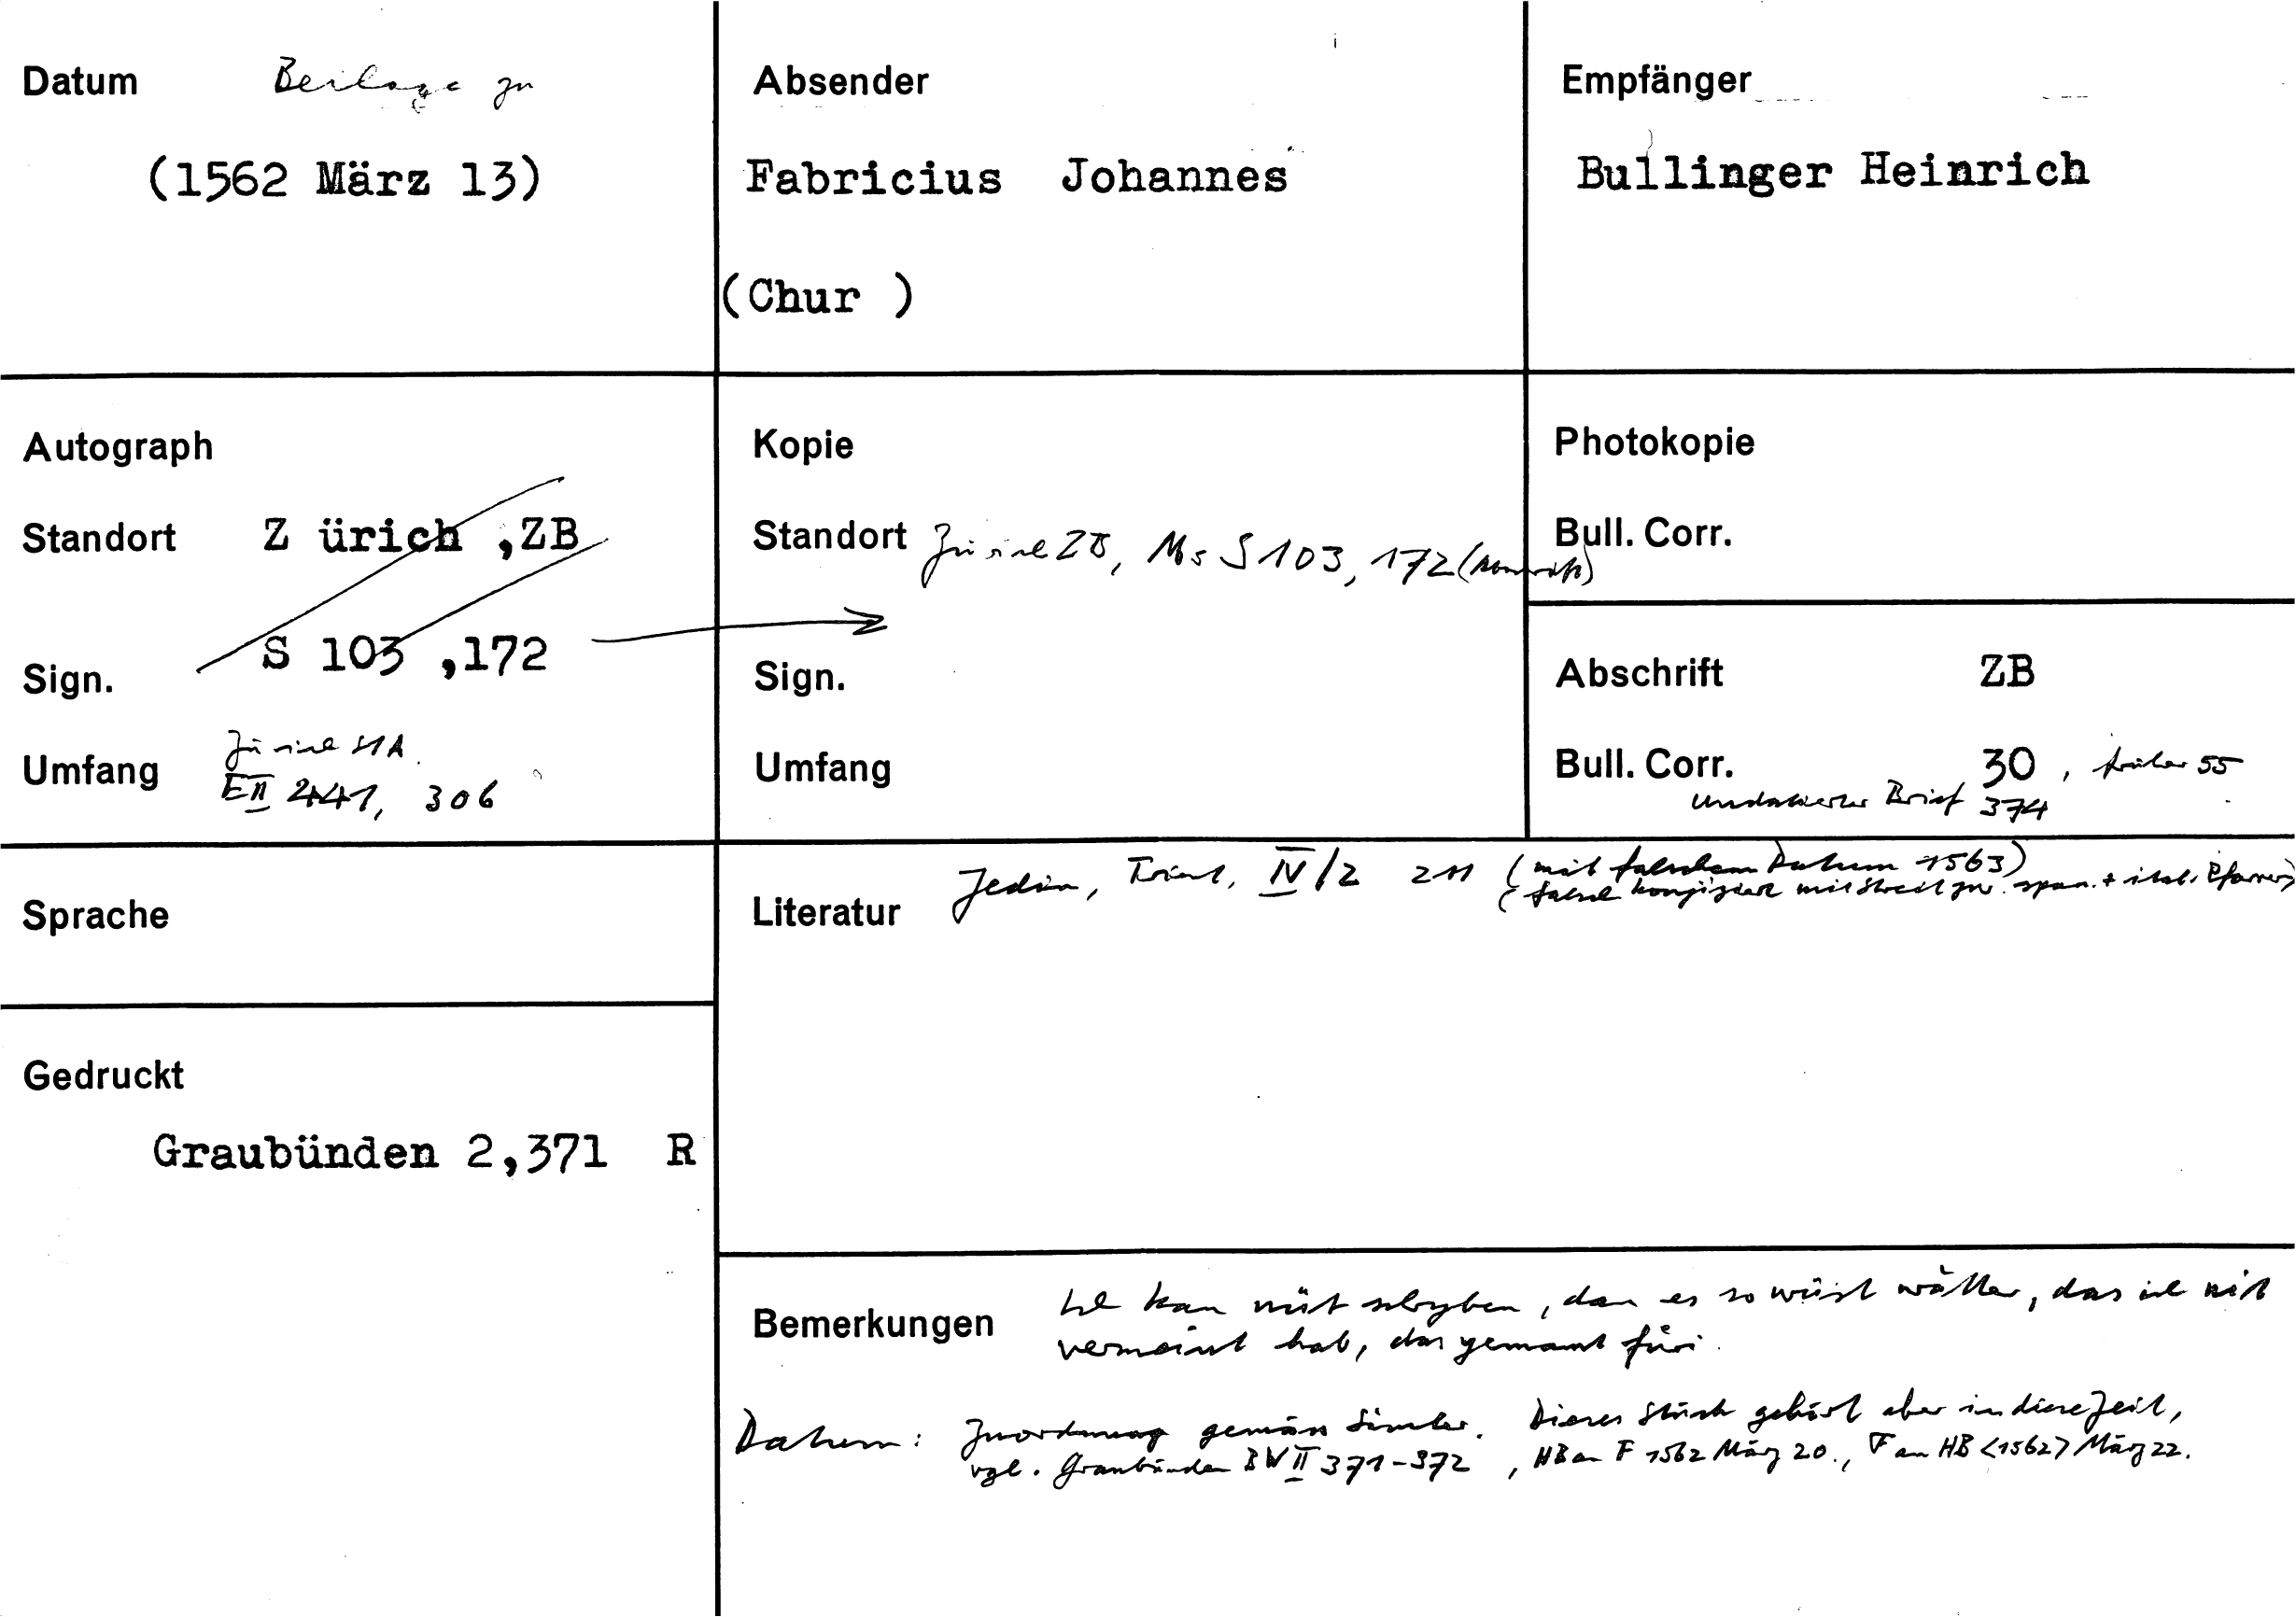 Datum Beilage zu
(1562 März 13)
Absender
Fabricius Johannes
(Chur )
Empfänger
Bullinger Heinrich
Autograph
Standort Z ürich ,ZB
Sign. S 103 ,172
Umfang Zürich StA
E II 441, 306
Kopie
Standort Zürich ZB, Ms S 103, 172
Sign.
Umfang
Photokopie
Bull. Corr.
Abschrift ZB
Bull. Corr. 30 , früher 55
undatierter Brief 374
Sprache
Gedruckt
Graubünden 2,371 R
Literatur Jedin, Trient, IV/2 211 (mit falschem Datum 1563)
(falsch mit Streit zw. span. + ital. Pfarrer)
Bemerkungen Ich kan nüt schryben, dan es so wüst wätter, das ich nit
vermeint hab, das iemamt für
Datum: Zuordnung gemäss Simler. Dieses Stück gehört aber in diese Zeit,
vgl. Graubünden BW II 371-372 , HB an F 1562 März 20., F an HB <1562> März 22.